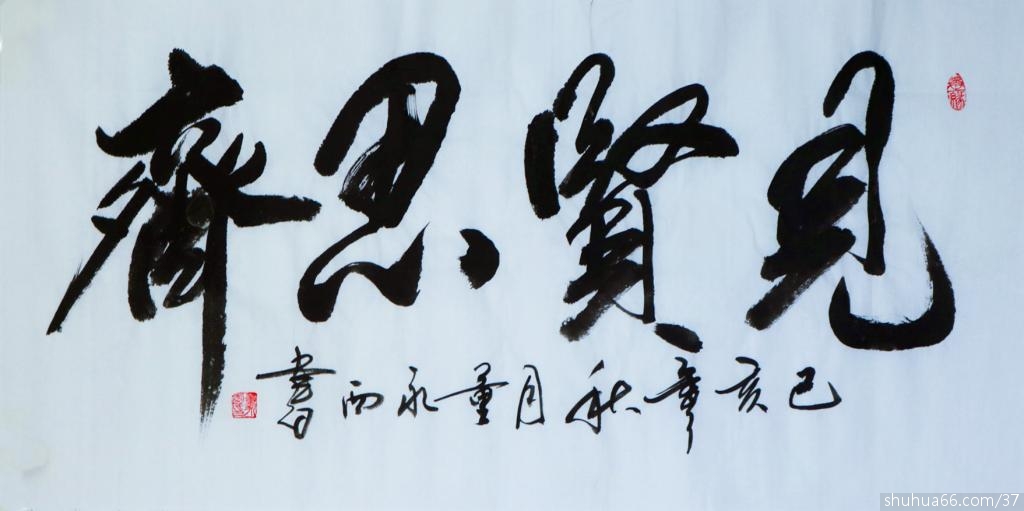 見賢思齊
己亥年秋月董永西書
shuhua66.com/37